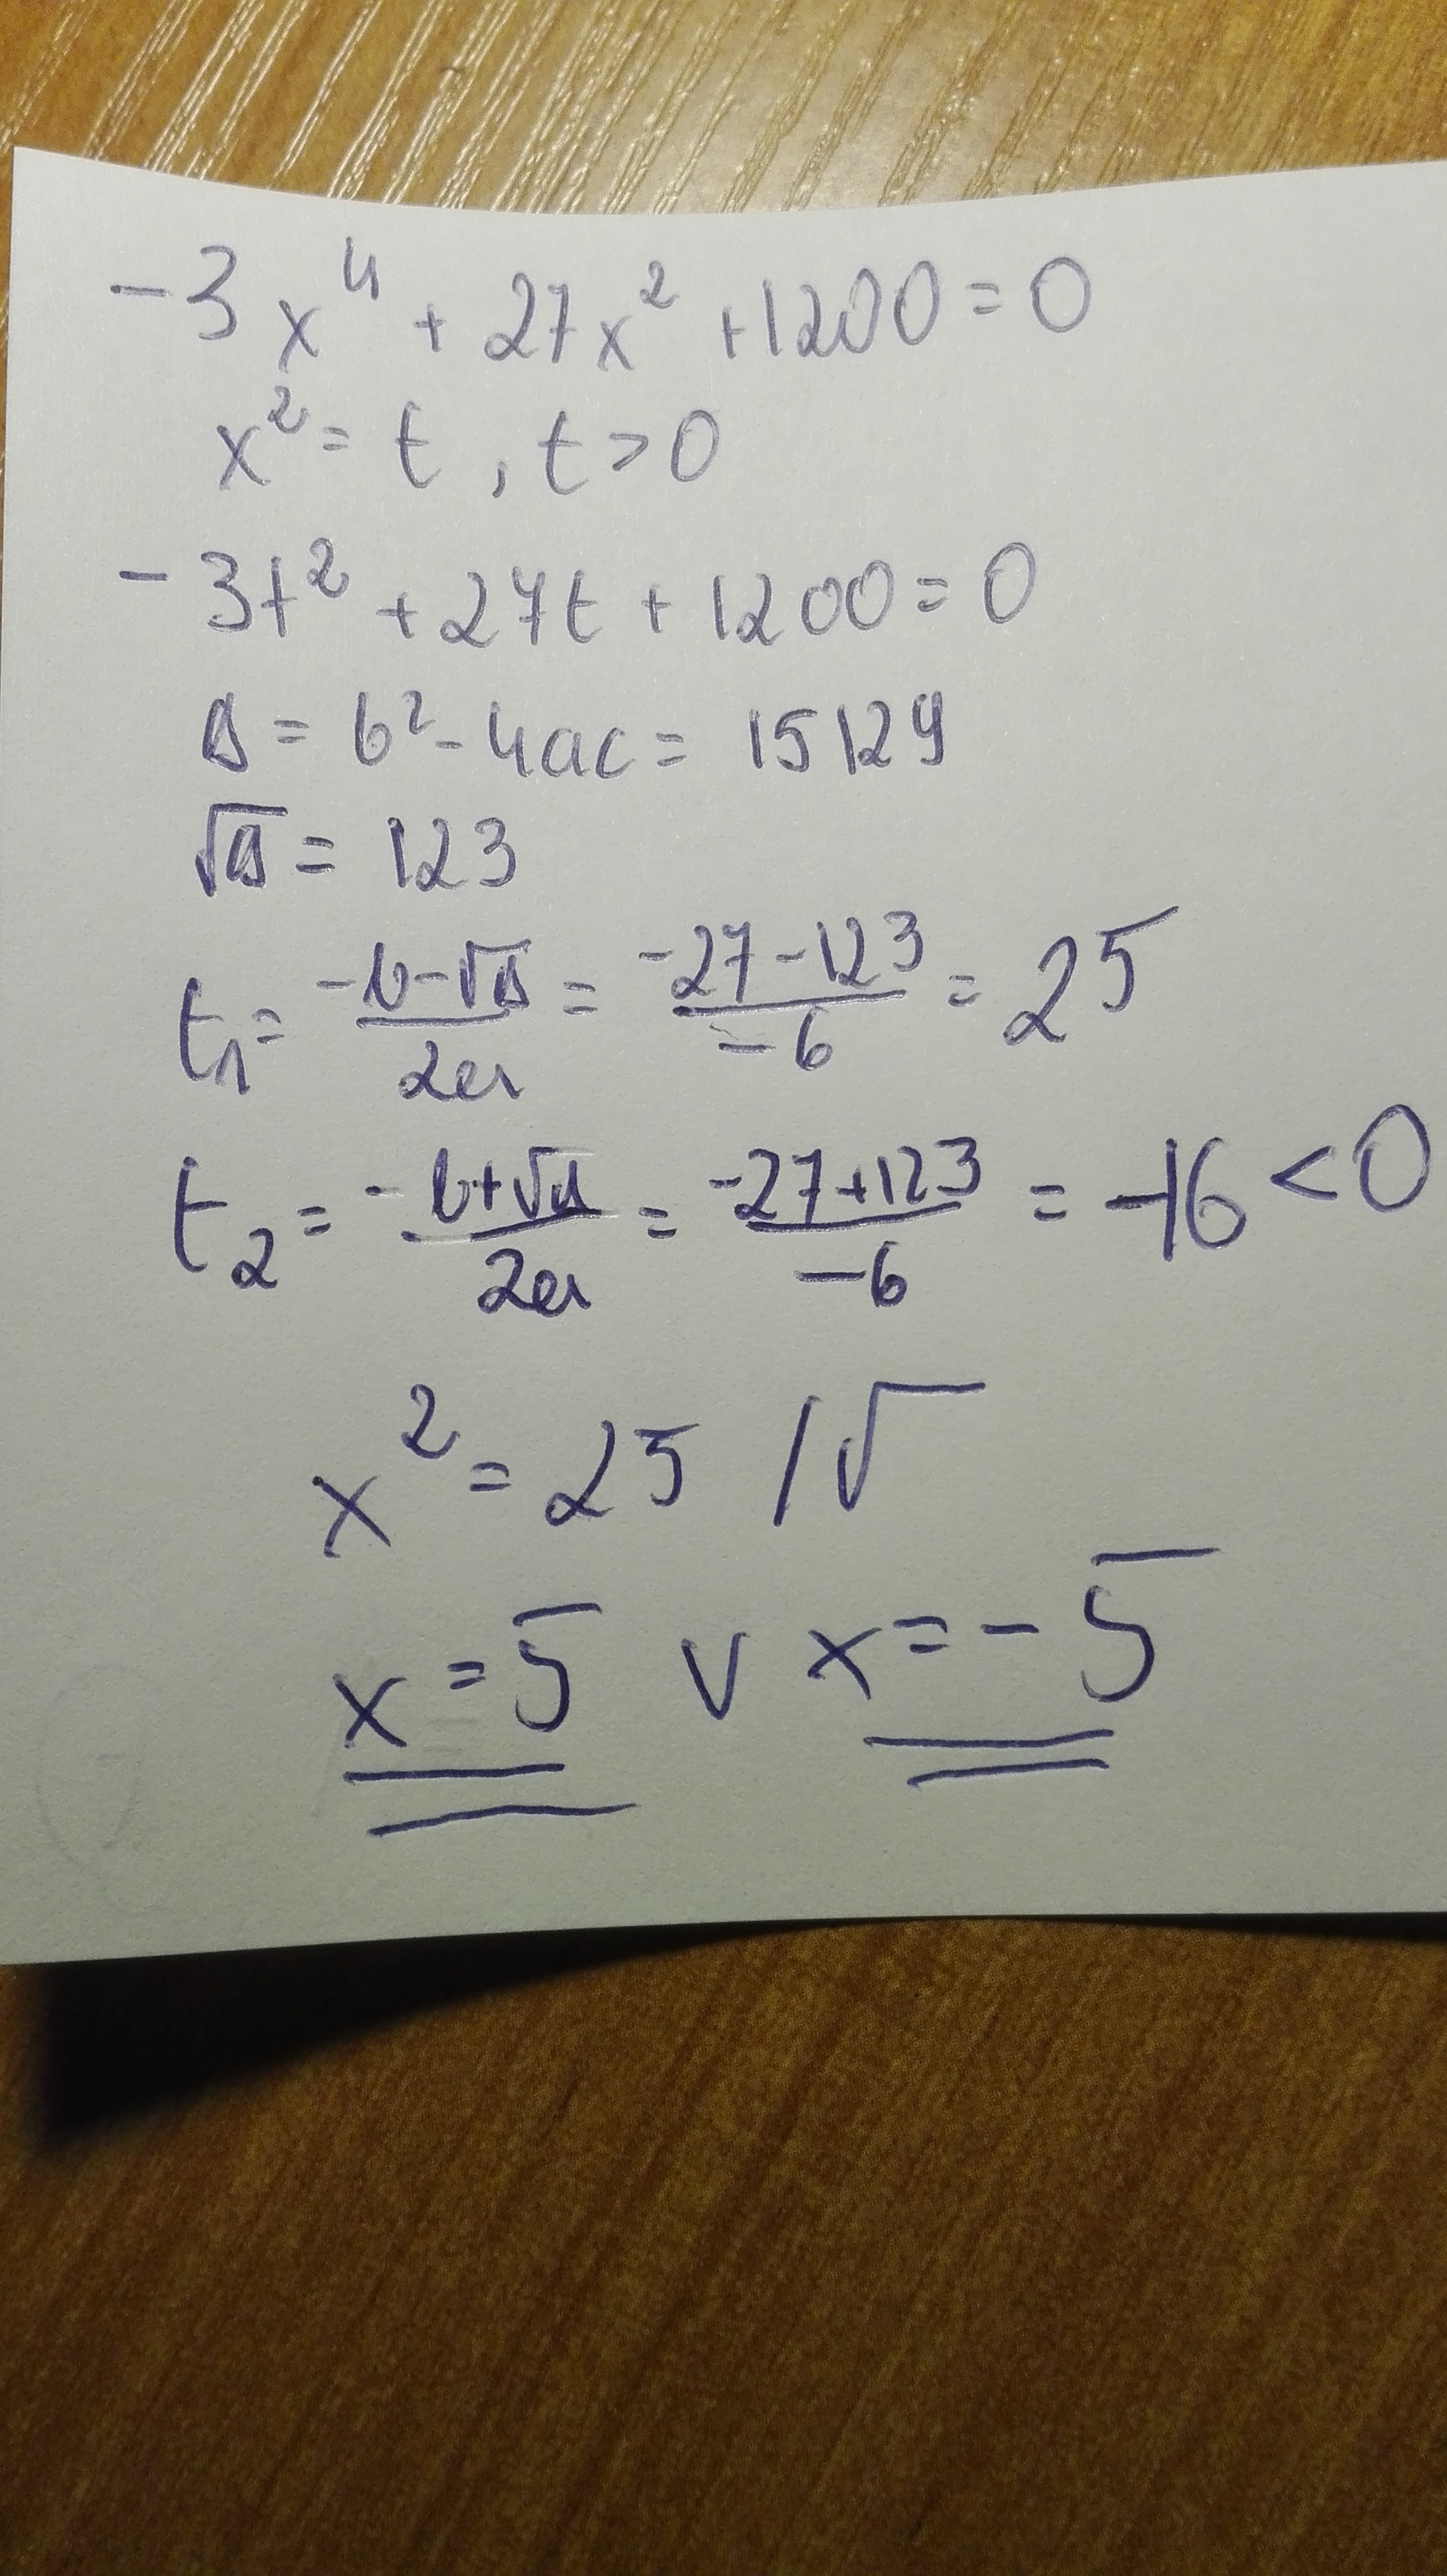 -3x⁴ + 27x² + 1200 = 0
x² = t, t > 0
-3t² + 27t + 1200 = 0
Δ = b² - 4ac = 15129
√Δ = 123
t₁ = (-b-√Δ)/2a = (-27-123)/-6 = 25
t₂ = (-b+√Δ)/2a = (-27+123)/-6 = -16 < 0
x² = 25 /√
x = 5 v x = -5